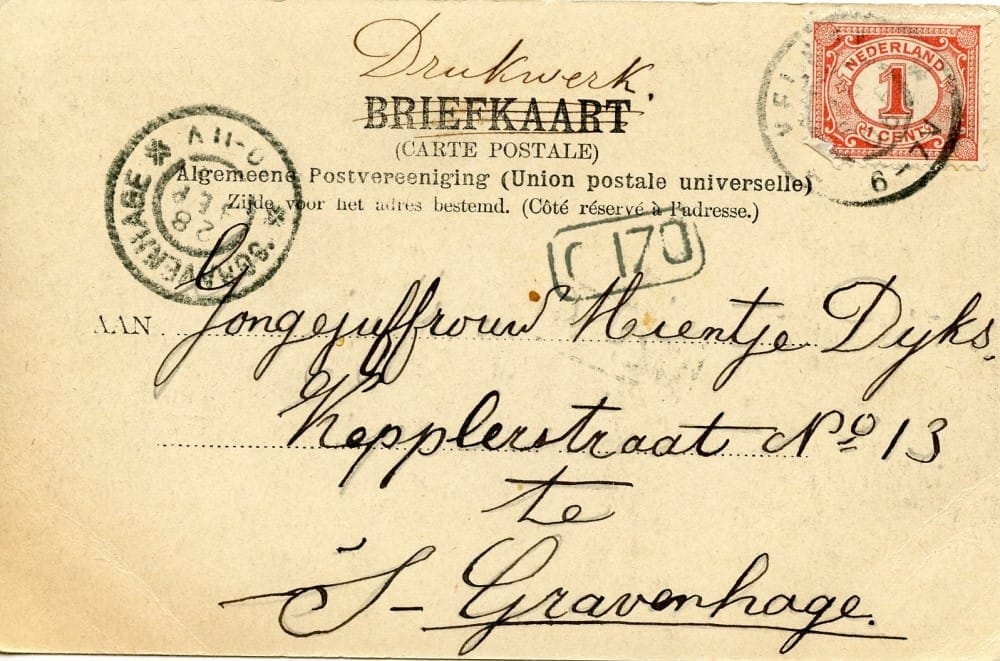 Drukwerk.
BRIEFKAART
(CARTE POSTALE)
Algemeene Postvereeniging (Union postale universelle)
Zijde voor het adres bestemd. (Côté réservé à l'adresse.)
NEDERLAND
1
1 CENT
'SGRAVENHAGE
28
C 170
AAN Jongejuffrouw Mientje Dyks,
Kepplerstraat No 13
te
's-Gravenhage.